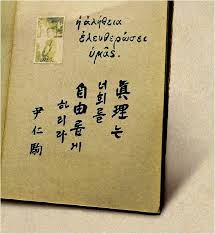 ἡ ἀλήθεια
ἐλευθερώσει
ὑμᾶς.
眞理는
너희를
自由롭게
하리라
尹仁駒